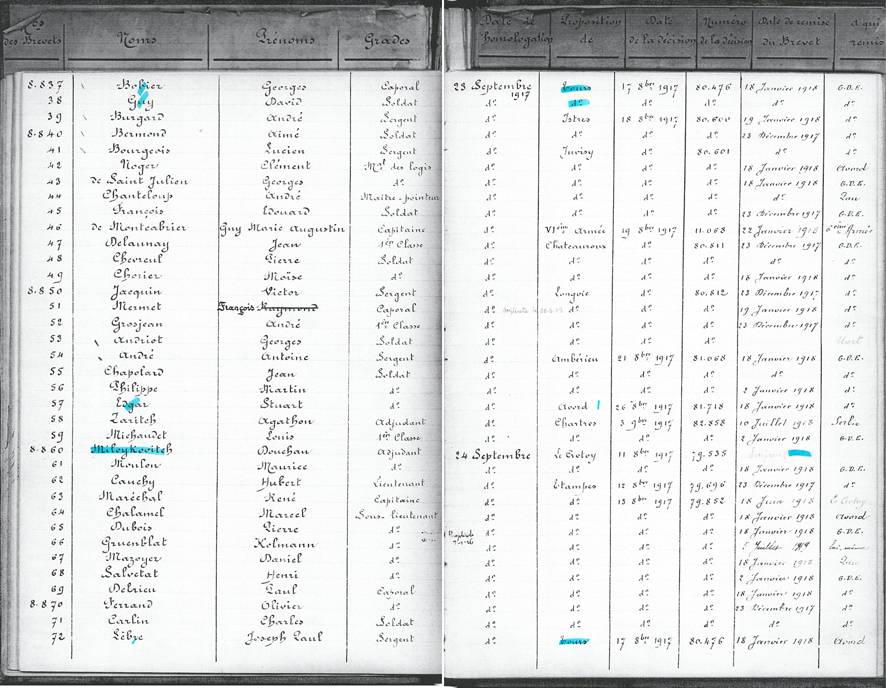 Nos des Brevets Noms Prénoms Grades Date de homologation Proposition de Date de la décision Numéro de la décision Date de remise du Brevet à qui remis
8.837 Bohier Georges Caporal 23 Septembre 1917 Tours 17 8bre 1917 80.476 18 Janvier 1918 G.D.E.
38 Guy David Soldat do do do do do do
39 Burgard André Sergent do Istres 18 8bre 1917 80.600 19 Janvier 1918 do
8.840 Bermond Aimé Soldat do do do do 23 Décembre 1917 do
41 Bourgeois Lucien Sergent do Juvisy do 80.601 do do
42 Noger Clément Mal des logis do do do do 18 Janvier 1918 Avord
43 de Saint Julien Georges do do do do do 18 Janvier 1918 G.D.E.
44 Chanteloup André Maître-pointeur do do do do do Pau
45 François Edouard Soldat do do do do 23 Décembre 1917 G.D.E.
46 de Montcabrier Guy Marie Augustin Capitaine do VIème Armée 19 8bre 1917 11.068 22 Janvier 1918 6ème Armée
47 Delaunay Jean 1ère Classe do Chateauroux do 80.811 23 Décembre 1917 G.D.E.
48 Chevreul Pierre Soldat do do do do do do
49 Chorier Moïse do do do do do 18 Janvier 1918 do
8.850 Jacquin Victor Sergent do Longvic do 80.812 23 Décembre 1917 do
51 Mermet François Raymond Caporal do do do do 19 Janvier 1918 do
52 Grosjean André 1ère Classe do do do do 23 Décembre 1917 do
53 Andriot Georges Soldat do do do do Mort
54 André Antoine Sergent do Ambérieu 21 8bre 1917 81.068 18 Janvier 1918 G.D.E.
55 Chapolard Jean Soldat do do do do do do
56 Philippe Martin do do do do do 2 Janvier 1918 do
57 Edgar Stuart do do Avord 26 8bre 1917 81.718 18 Janvier 1918 do
58 Zaritch Agathon Adjudant do Chartres 3 9bre 1917 82.858 10 Juillet 1918 Serbie
59 Michaudet Louis 1ère Classe do do do do 2 Janvier 1918 G.D.E.
8.860 Miloykovitch Douchan Adjudant 24 Septembre Le Crotoy 11 8bre 1917 79.535
61 Moulon Maurice do do do do do 18 Janvier 1918 G.D.E.
62 Cauchy Hubert Lieutenant do Etampes 12 8bre 1917 79.696 23 Décembre 1917 do
63 Maréchal René Capitaine do do 13 8bre 1917 79.852 18 Juin 1918 Le Crotoy
64 Chalamel Marcel Sous-lieutenant do do do do 18 Janvier 1918 Avord
65 Dubois Pierre do do do do do 18 Janvier 1918 G.D.E.
66 Gruenblat Kolmann do do do do do 5 Juillet 1919 lui-même
67 Mazoyer Daniel do do do do do 18 Janvier 1918 Pau
68 Salvetat Henri do do do do do 2 Janvier 1918 G.D.E.
69 Delrieu Paul Caporal do do do do 18 Janvier 1918 do
8.870 Ferrand Olivier do do do do do 23 Décembre 1917 do
71 Carlin Charles Soldat do do do do do do
72 Lèbre Joseph Paul Sergent do Tours 17 8bre 1917 80.476 18 Janvier 1918 Avord